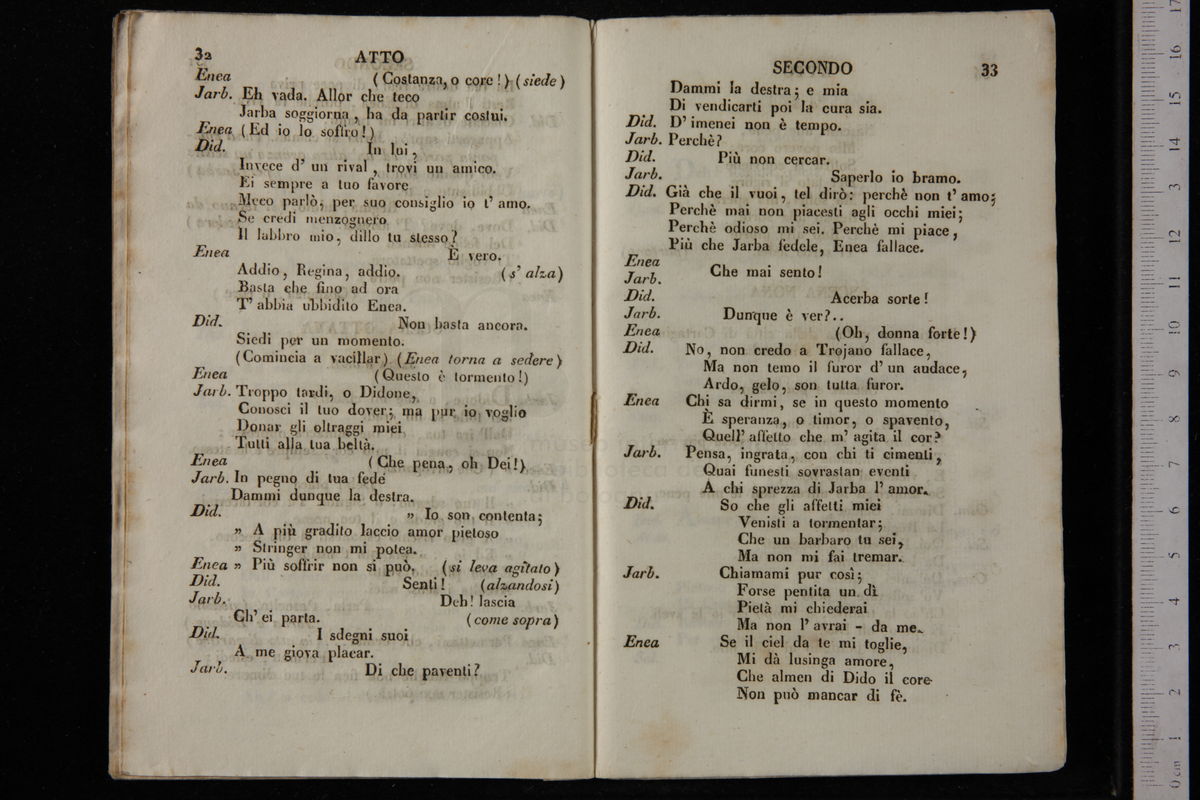 32 ATTO
Enea (Costanza, o core!) (siede)
Jarb. Eh vada. Allor che teco
Jarba soggiorna, ha da partir costui.
Enea (Ed io lo soffro!)
Did. In lui,
Invece d' un rival, trovi un amico.
Ei sempre a tuo favore
Meco parlò, per suo consiglio io t' amo.
Se credi menzognero
Il labbro mio, dillo tu stesso?
Enea È vero.
Addio, Regina, addio. (s' alza)
Basta che fino ad ora
T' abbia ubbidito Enea.
Did. Non basta ancora.
Siedi per un momento.
(Comincia a vacillar) (Enea torna a sedere)
Enea (Questo è tormento!)
Jarb. Troppo tardi, o Didone,
Conosci il tuo dover; ma pur io voglio
Donar gli oltraggi miei
Tutti alla tua beltà.
Enea (Che pena, oh Dei!)
Jarb. In pegno di tua fede
Dammi dunque la destra.
Did. » Io son contenta;
» A più gradito laccio amor pietoso
» Stringer non mi potea.
Enea » Più soffrir non si può. (si leva agitato)
Did. Senti! (alzandosi)
Jarb. Deh! lascia
Ch' ei parta. (come sopra)
Did. I sdegni suoi
A me giova placar.
Jarb. Di che paventi?
SECONDO 33
Dammi la destra; e mia
Di vendicarti poi la cura sia.
Did. D' imenei non è tempo.
Jarb. Perchè?
Did. Più non cercar.
Jarb. Saperlo io bramo.
Did. Già che il vuoi, tel dirò: perchè non t' amo;
Perchè mai non piacesti agli occhi miei;
Perchè odioso mi sei. Perchè mi piace,
Più che Jarba fedele, Enea fallace.
Enea
Jarb. Che mai sento!
Did. Acerba sorte!
Jarb. Dunque è ver?..
Enea (Oh, donna forte!)
Did. No, non credo a Trojano fallace,
Ma non temo il furor d' un audace,
Ardo, gelo, son tutta furor.
Enea Chi sa dirmi, se in questo momento
È speranza, o timor, o spavento,
Quell' affetto che m' agita il cor?
Jarb. Pensa, ingrata, con chi ti cimenti,
Quai funesti sovrastan eventi
A chi sprezza di Jarba l' amor.
Did. So che gli affetti miei
Venisti a tormentar;
Che un barbaro tu sei,
Ma non mi fai tremar.
Jarb. Chiamami pur così;
Forse pentita un dì
Pietà mi chiederai
Ma non l' avrai - da me.
Enea Se il ciel da te mi toglie,
Mi dà lusinga amore,
Che almen di Dido il core
Non può mancar di fè.